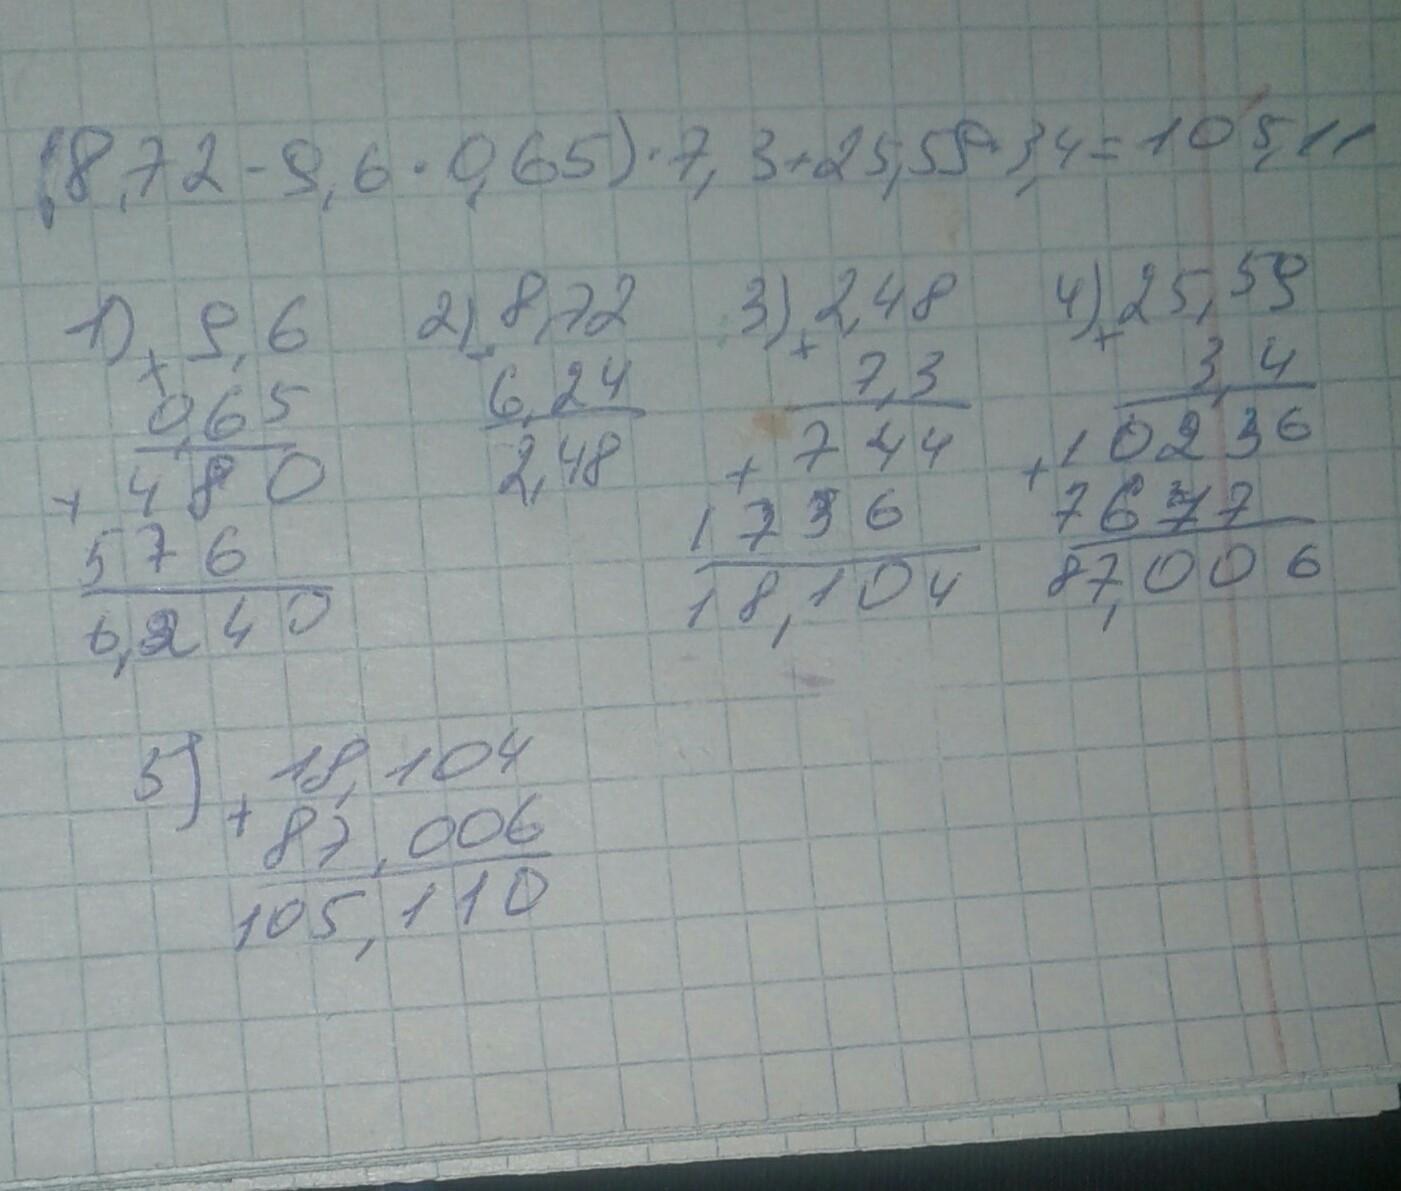 (8,72-9,6·0,65)·7,3+25,59·3,4=105,11
1) × 9,6
0,65
+ 480
576
6,240
2) - 8,72
6,24
2,48
3) × 2,48
7,3
+ 744
1736
18,104
4) × 25,59
3,4
+ 10236
7677
87,006
5) + 18,104
87,006
105,110